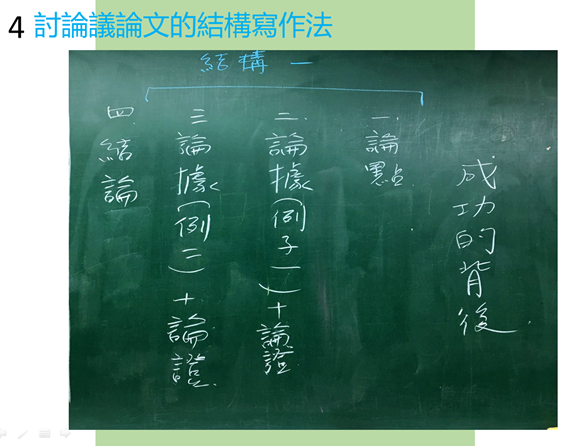 4 討論議論文的結構寫作法
結構一
成功的背後
一.論點
二.論據(例子一)+論證
三論據(例二)+論證
四.結論